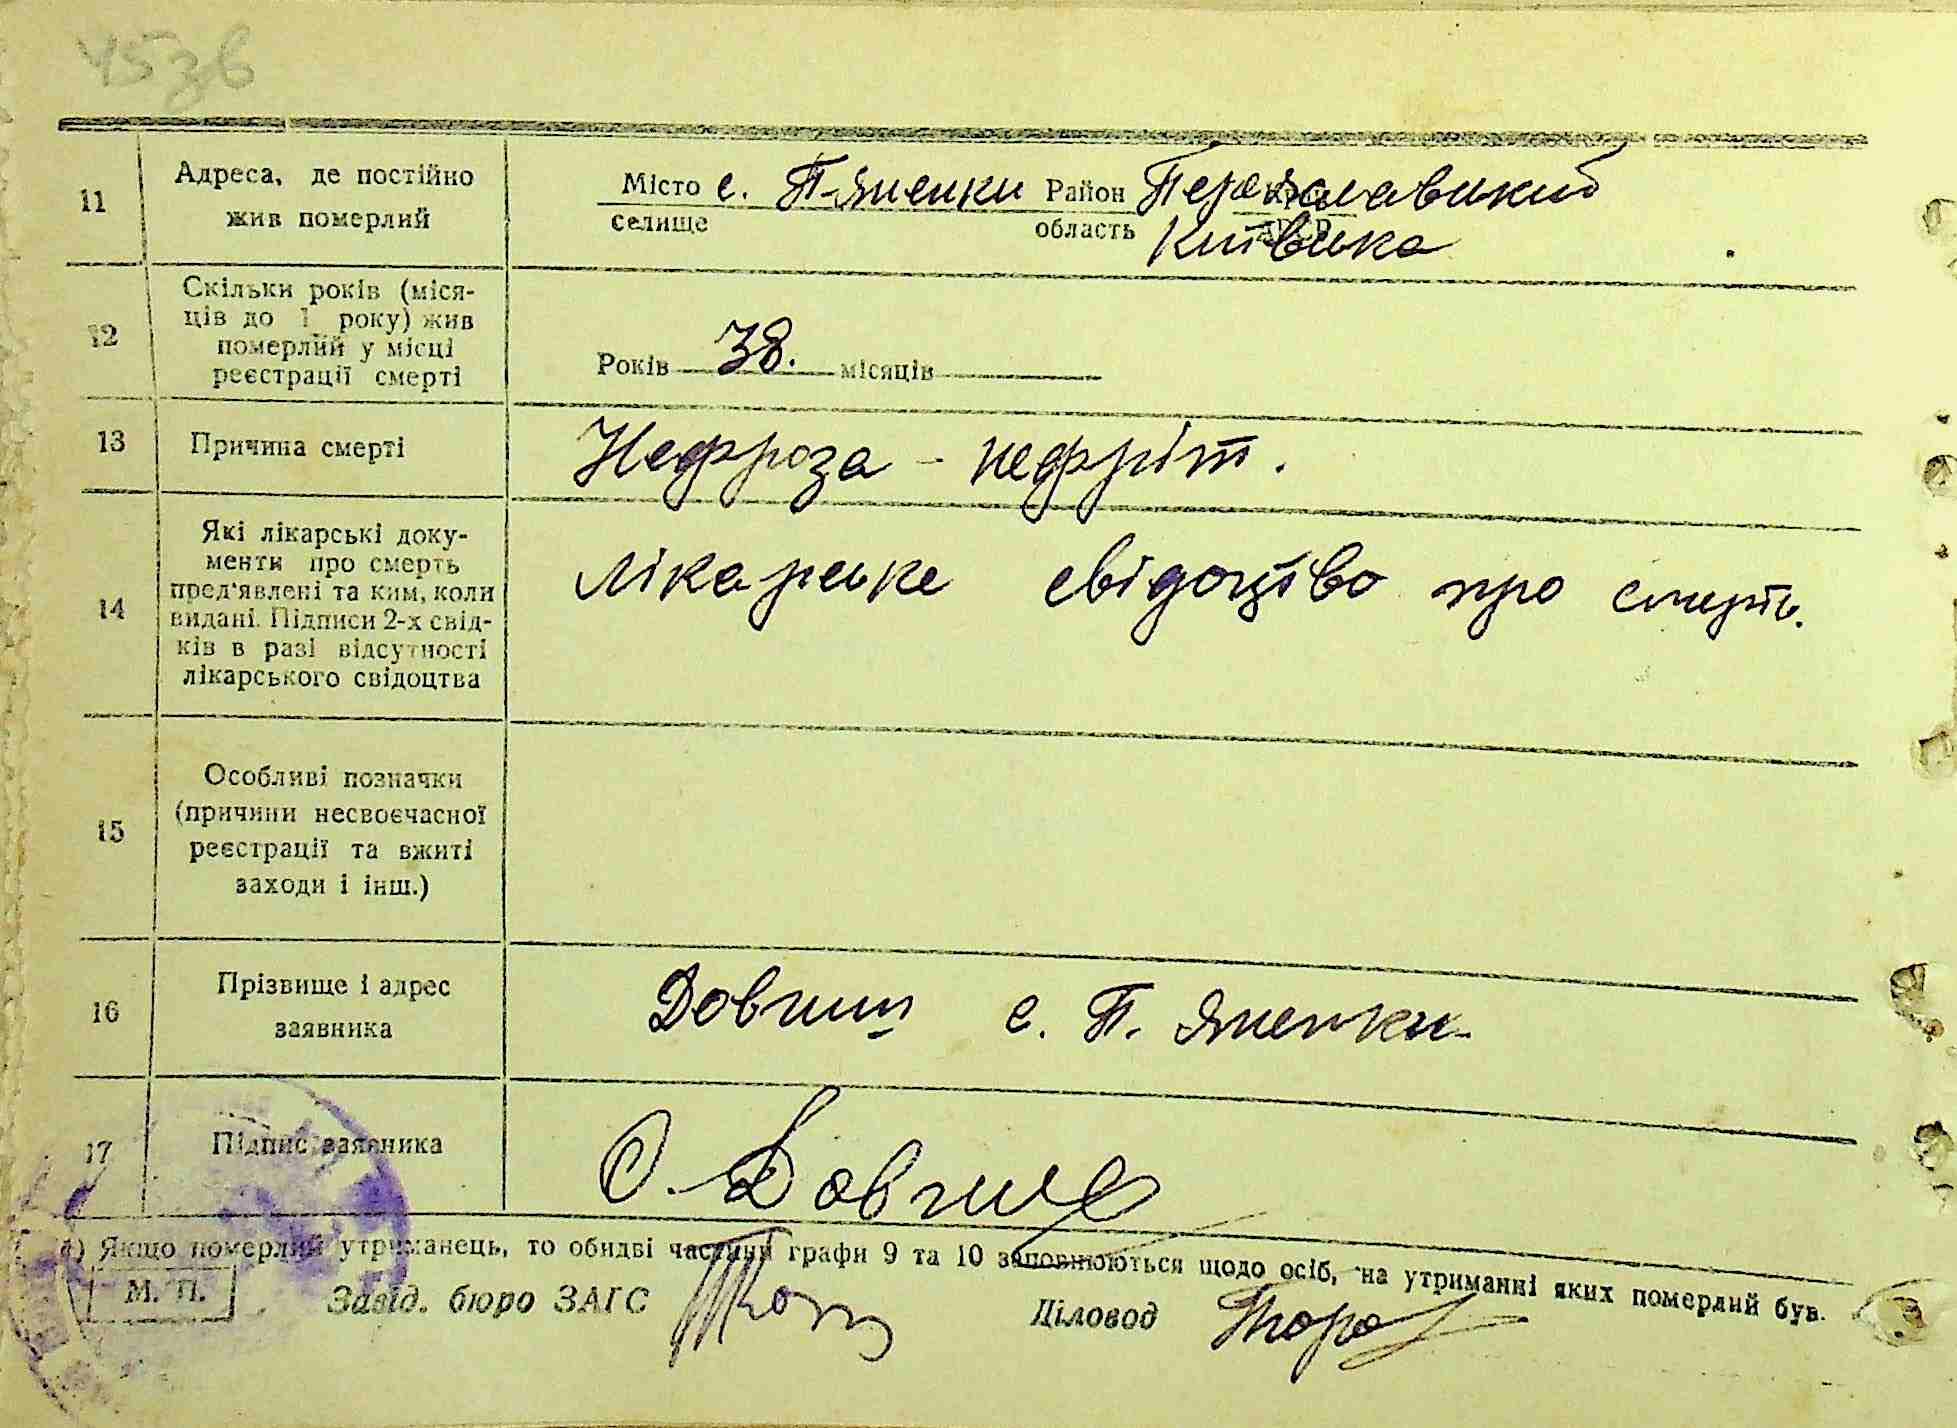 45зв
11
Адреса, де постійно
жив померлий
Місто с. П-Яненки Район Переяславський
селище область Київська
12
Скільки років (міся-
ців до 1 року) жив
померлий у місці
реєстрації смерті
Років 38. місяців
13
Причина смерті
Нефроза - нефріт.
14
Які лікарські доку-
менти про смерть
пред'явлені та ким, коли
видані. Підписи 2-х свід-
ків в разі відсутності
лікарського свідоцтва
Лікарське свідоцтво про смерть.
15
Особливі позначки
(причини несвоєчасної
реєстрації та вжиті
заходи і інш.)
16
Прізвище і адрес
заявника
Довгиш с. П. Яненки
17
Підпис заявника
О. Довгиш
Якщо померлий утриманець, то обидві частини графи 9 та 10 заповнюються щодо осіб, на утриманні яких померлий був.
М. П.
Завід. бюро ЗАГС
Діловод